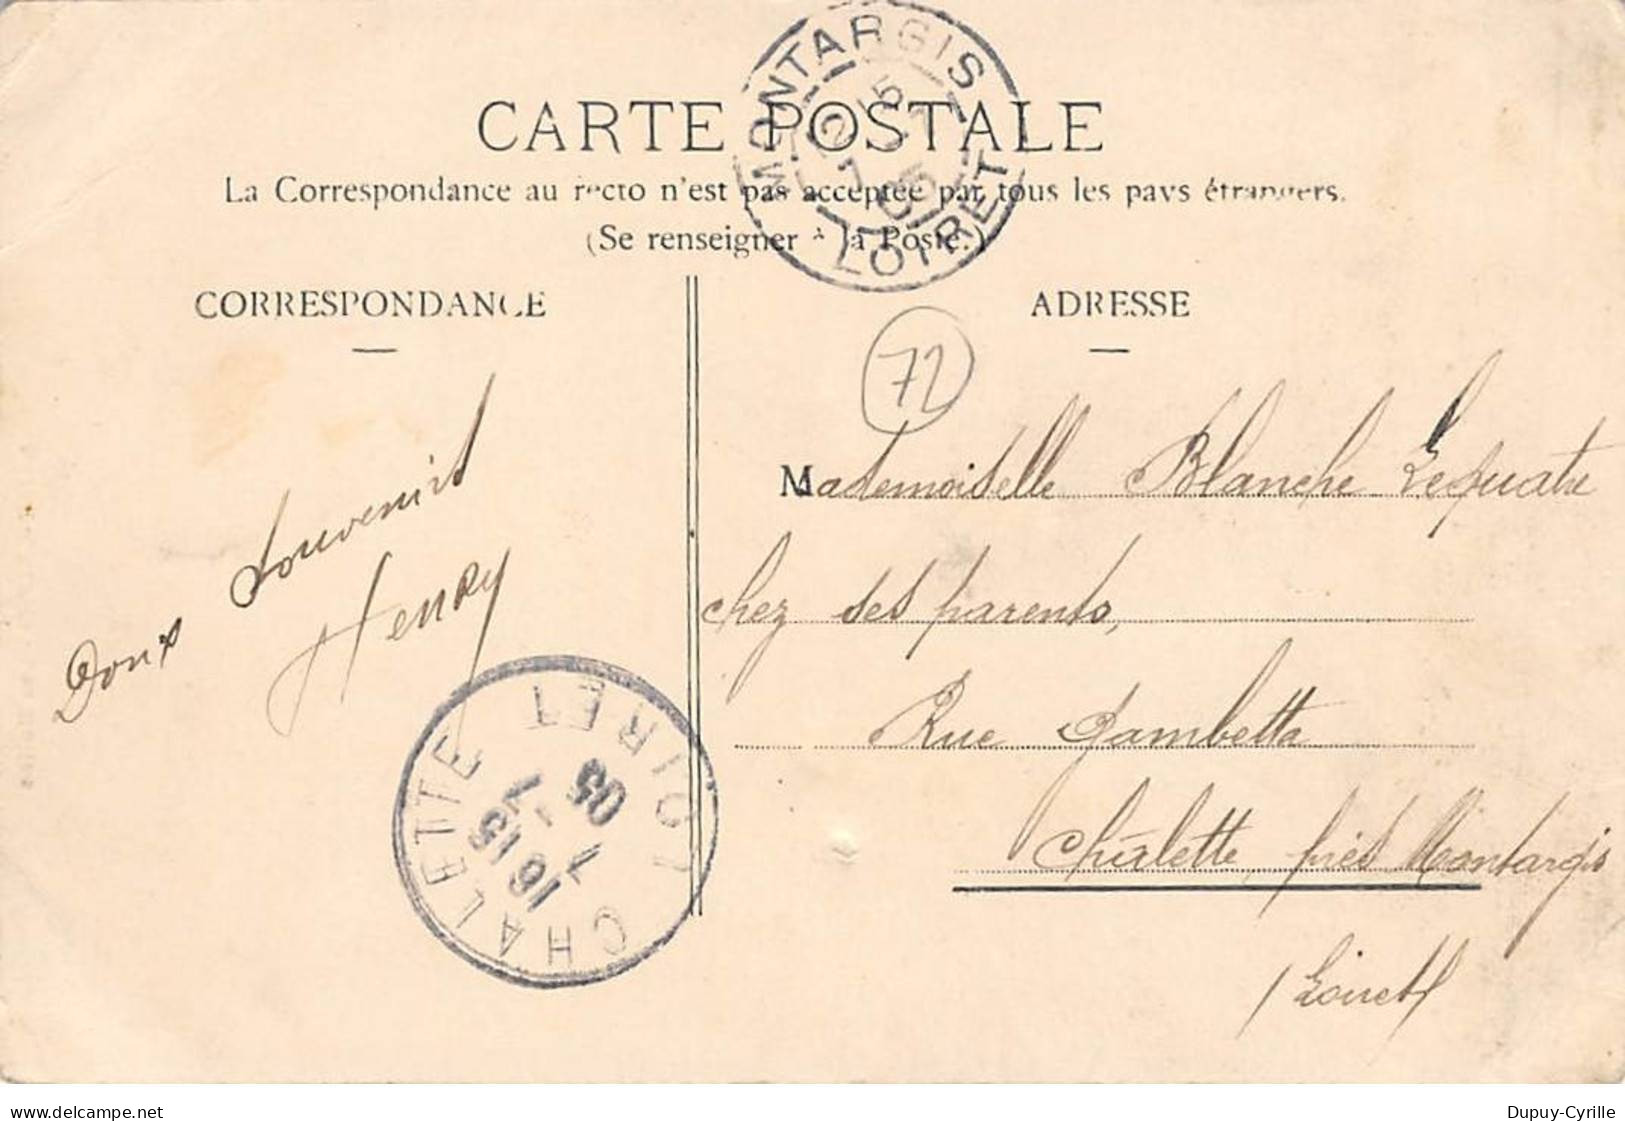 CARTE POSTALE
La Correspondance au recto n'est pas acceptée par tous les pays étrangers.
(Se renseigner à la Poste.)
MONTARGIS
LOIRET
CORRESPONDANCE
ADRESSE
72
Doux Souvenir
Henry
Mademoiselle Blanche Lequatre
chez ses parents,
Rue Gambetta
Châlette, près Montargis
(Loiret)
CHALETTE
LOIRET
16 15
7
05
www.delcampe.net
Dupuy-Cyrille